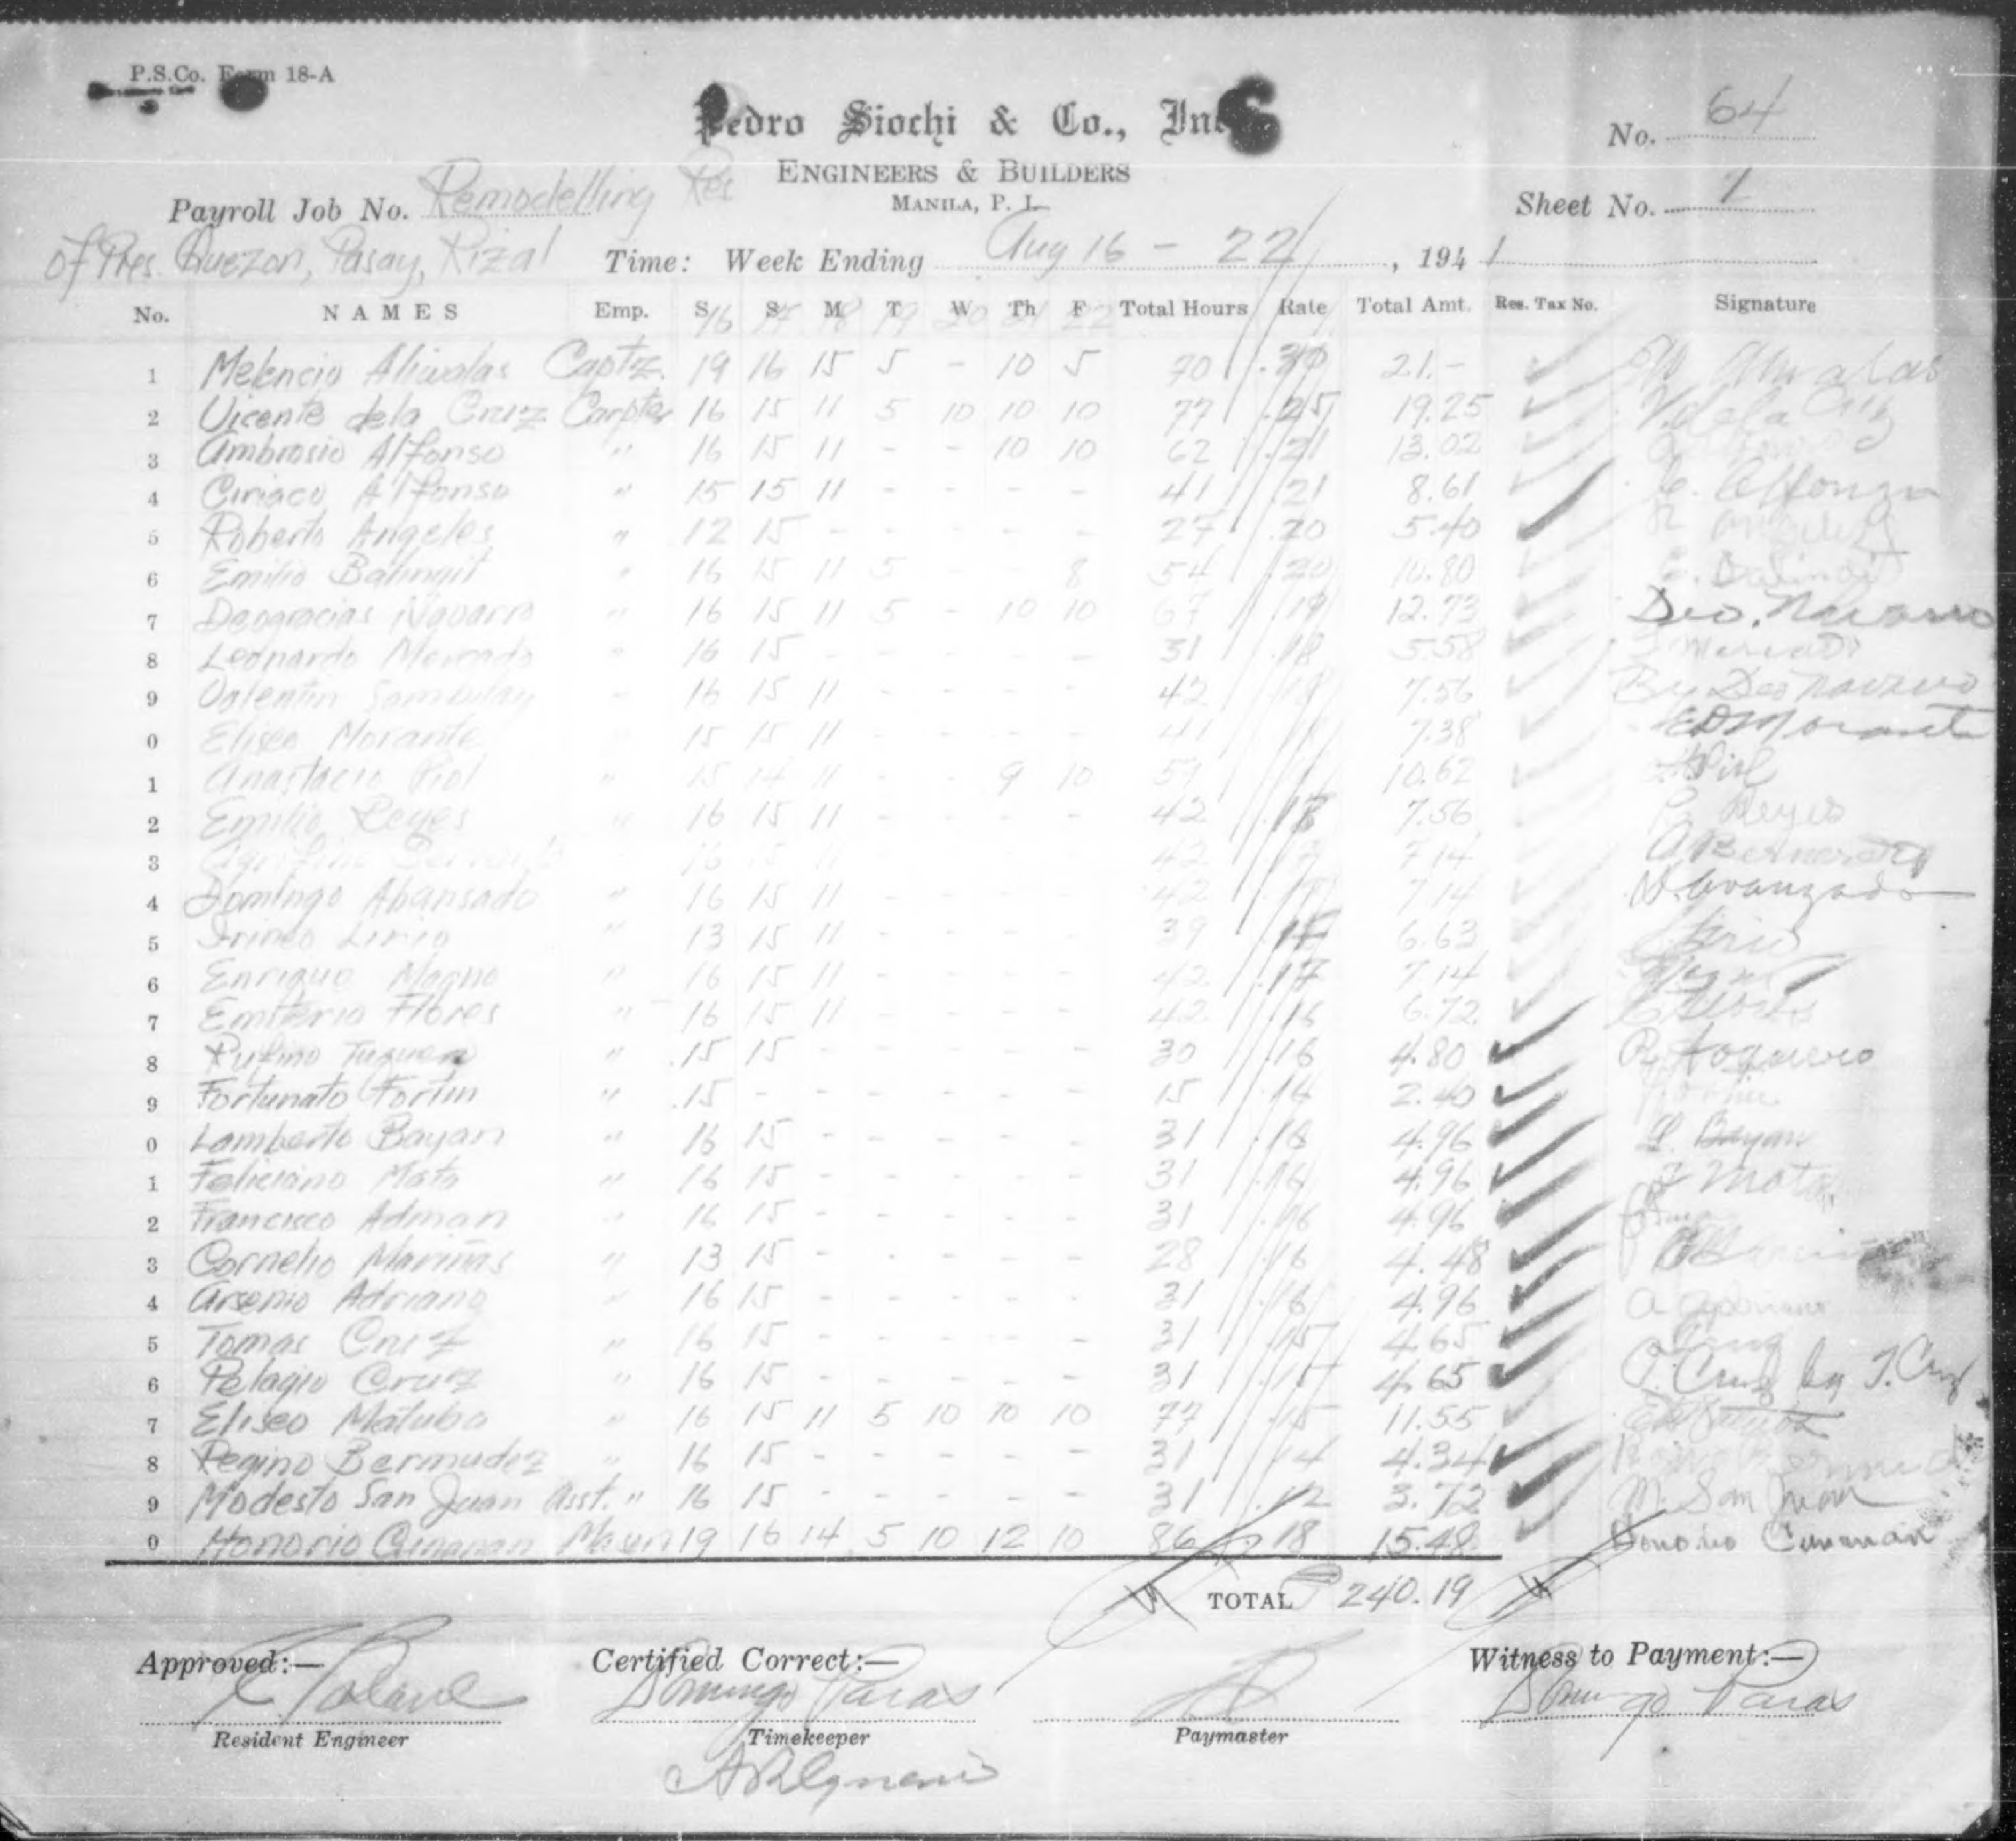 P.S.Co. Form 18-A
Pedro Siochi & Co., Inc.
No. 64
ENGINEERS & BUILDERS
MANILA, P. I.
Payroll Job No. Remodelling Res
Sheet No. 1
of Pres. Quezon, Pasay, Rizal Time: Week Ending Aug 16 - 22, 1941
No. NAMES Emp. S S M T W Th F Total Hours Rate Total Amt. Res. Tax No. Signature
16 17 18 19 20 21 22
1 Melencio Aliwalas Captz. 19 16 15 5 - 10 5 70 .30 21.-
2 Vicente dela Cruz Carpter 16 15 11 5 10 10 10 77 .25 19.25 V. dela Cruz
3 Ambrosio Alfonso " 16 15 11 - - 10 10 62 .21 13.02
4 Ciriaco Alfonso " 15 15 11 - - - - 41 .21 8.61 C. Alfonso
5 Roberto Angeles " 12 15 - - - - - 27 .20 5.40 R. Angeles
6 Emilio Balingit " 16 15 11 5 - - 8 54 .20 10.80 E. Balingit
7 Deogracias Navarro " 16 15 11 5 - 10 10 67 .19 12.73 Deo. Navarro
8 Leonardo Mercado " 16 15 - - - - - 31 .18 5.58 Mercado
9 Valentin 16 15 11 - - - - 42 7.56 By Deo Navarro
0 Eliseo Morante 15 15 11 - - - - 41 7.38 ED Morante
1 Anastacio Piol " 15 14 11 - - 9 10 59 10.62 A Piol
2 Emilio Reyes " 16 15 11 - - - - 42 .18 7.56 Reyes
3 16 15 11 - - - - 42 7.14 A Bernardo
4 Domingo Abansado " 16 15 11 - - - - 42 .17 7.14 D. Avanzado
5 Irineo Lirio " 13 15 11 - - - - 39 .17 6.63 Lirio
6 Enrique Magno " 16 15 11 - - - - 42 .17 7.14
7 Emiterio Flores " 16 15 11 - - - - 42 .16 6.72 E Flores
8 Rufino " 15 15 - - - - - 30 .16 4.80 R. Toquero
9 Fortunato Fortin " 15 - - - - - - 15 .16 2.40
0 Lamberto Bayan " 16 15 - - - - - 31 .16 4.96 L. Bayan
1 Feliciano Mata " 16 15 - - - - - 31 .16 4.96 F Mata
2 Francisco Adman " 16 15 - - - - - 31 .16 4.96
3 Cornelio Mariñas " 13 15 - - - - - 28 .16 4.48
4 Arsenio Adriano " 16 15 - - - - - 31 .16 4.96 A Adriano
5 Tomas Cruz " 16 15 - - - - - 31 .15 4.65
6 Pelagio Cruz " 16 15 - - - - - 31 .15 4.65 P. Cruz by T. Cruz
7 Eliseo Matuba " 16 15 11 5 10 10 10 77 .15 11.55
8 Regino Bermudez " 16 15 - - - - - 31 .14 4.34
9 Modesto San Juan Asst. " 16 15 - - - - - 31 .12 3.72 M. San Juan
0 Honorio Cunanan Mason 19 16 14 5 10 12 10 86 .18 15.48 Honorio Cunanan
TOTAL 240.19
Approved:— Certified Correct:— Witness to Payment:—
Domingo Paras Domingo Paras
Resident Engineer Timekeeper Paymaster